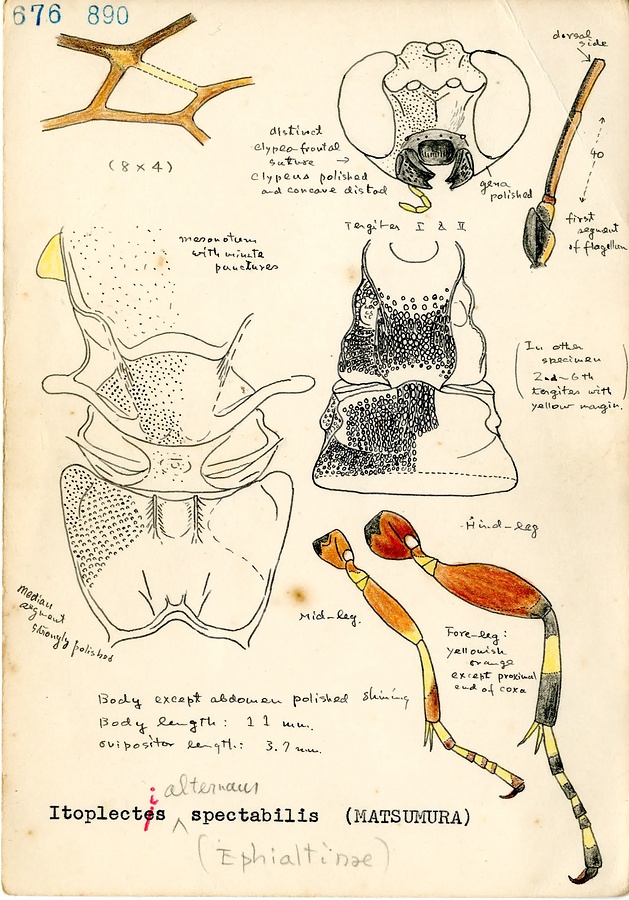 676 890
dorsal
side
distinct
clypeo-frontal
suture →
clypeus polished
and concave distad
(8 x 4)
gena
polished
40
first
segment
of flagellum
Tergites I & II
mesonotum
with minute
punctures
(In other
specimen
2nd~6th
tergites with
yellow margin.)
Hind-leg
Mid-leg.
Fore-leg:
yellowish
orange
except proximal
end of coxa
median
strongly polished
Body except abdomen polished shining
Body length: 11 mm.
ovipositor length: 3.7 mm.
i alternans
Itoplectes spectabilis (MATSUMURA)
(Ephialtinae)